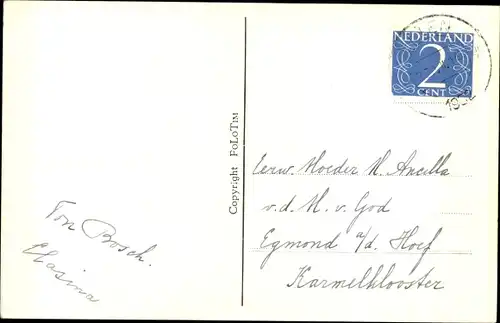 Ton Bosch.
Clasina
Copyright FoLoTim
NEDERLAND
2
CENT
Eerw. Moeder M. Ancilla
v.d. M. v. God
Egmond a/d. Hoef
Karmelklooster